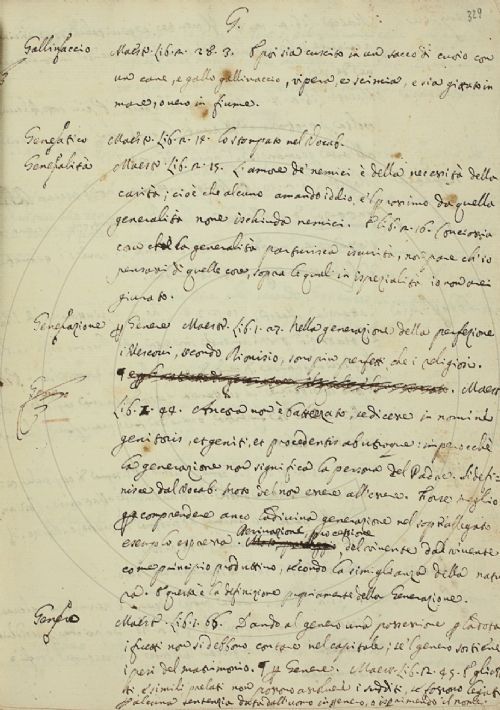 G.
329
Gallinaccio Maest. Lib. 2. 28. 3. E poi sia cuscito in un sacco di cuoio con
un cane, e gallo gallinaccio, vipera e scimia, e sia gittato in
mare, o vero in fiume.
Generatico Maest. Lib. 2. 18. lo stampato nel Vocab.
Generalità Maest. Lib. 2. 15. L'amore de' nemici è della necessità della
carità; cioè che alcuno amando iddio, e'l prossimo da quella
generalità none ischiuda nemici. E lib. 2. 16. Conciossia
cosa che la generalità parturisca iscurità, non pare ch'io
pensassi di quelle cose, sopra le quali in ispezialità io non arei
giurato.
Generazione Genere Maest. Lib. 1. 27. Nella generazione della perfezione
i Vescovi, secondo Dionisio, sono più perfetti che i religiosi.
Maest.
Lib. 44. Ancora non è battezzato, se dicesse in nomine
genitoris, et geniti, et procedentis ab utroque: imperocchè
la generazione non significa la persona del Padre. Si defi-
nisce dal Vocab. Moto del non essere all'essere. Forse meglio
comprendere anco la divina generazione nel soprallegato
esempio espressa. Derivazione, processione
del vivente dal vivente
come principio produttivo, secondo la simiglianza della natu
ra. E questa è la definizione propriamente della Generazione.
Genero Maest. Lib. 1. 68. Dando al genero una possessione la dota
i frutti non si debbono contare nel capitale; se'l genero sostiene
i pesi del matrimonio. Genere. Maest. Lib. 2. 45.
e simili prelati non possono assolvere i sudditi, se fossono legati
alcuna sentenzia data dall'uomo in genero, o esprimendo il nome.